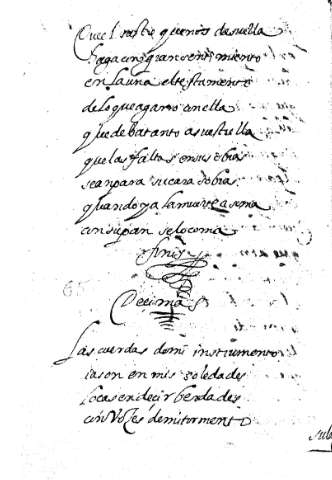 que el sastre que nos desuella
haga con gran sentimiento
en la uña el testamento
de lo que agarro en ella
que deba tanto a su estrella
que las faltas en sus obras
sean para su casa sobras
quando ya la muerte asoma
con su pan se lo coma
finis
Decimas
Las cuerdas de mi instrumento
ia son en mis soledades
locas en decir berdades
con Voses de mi tormento